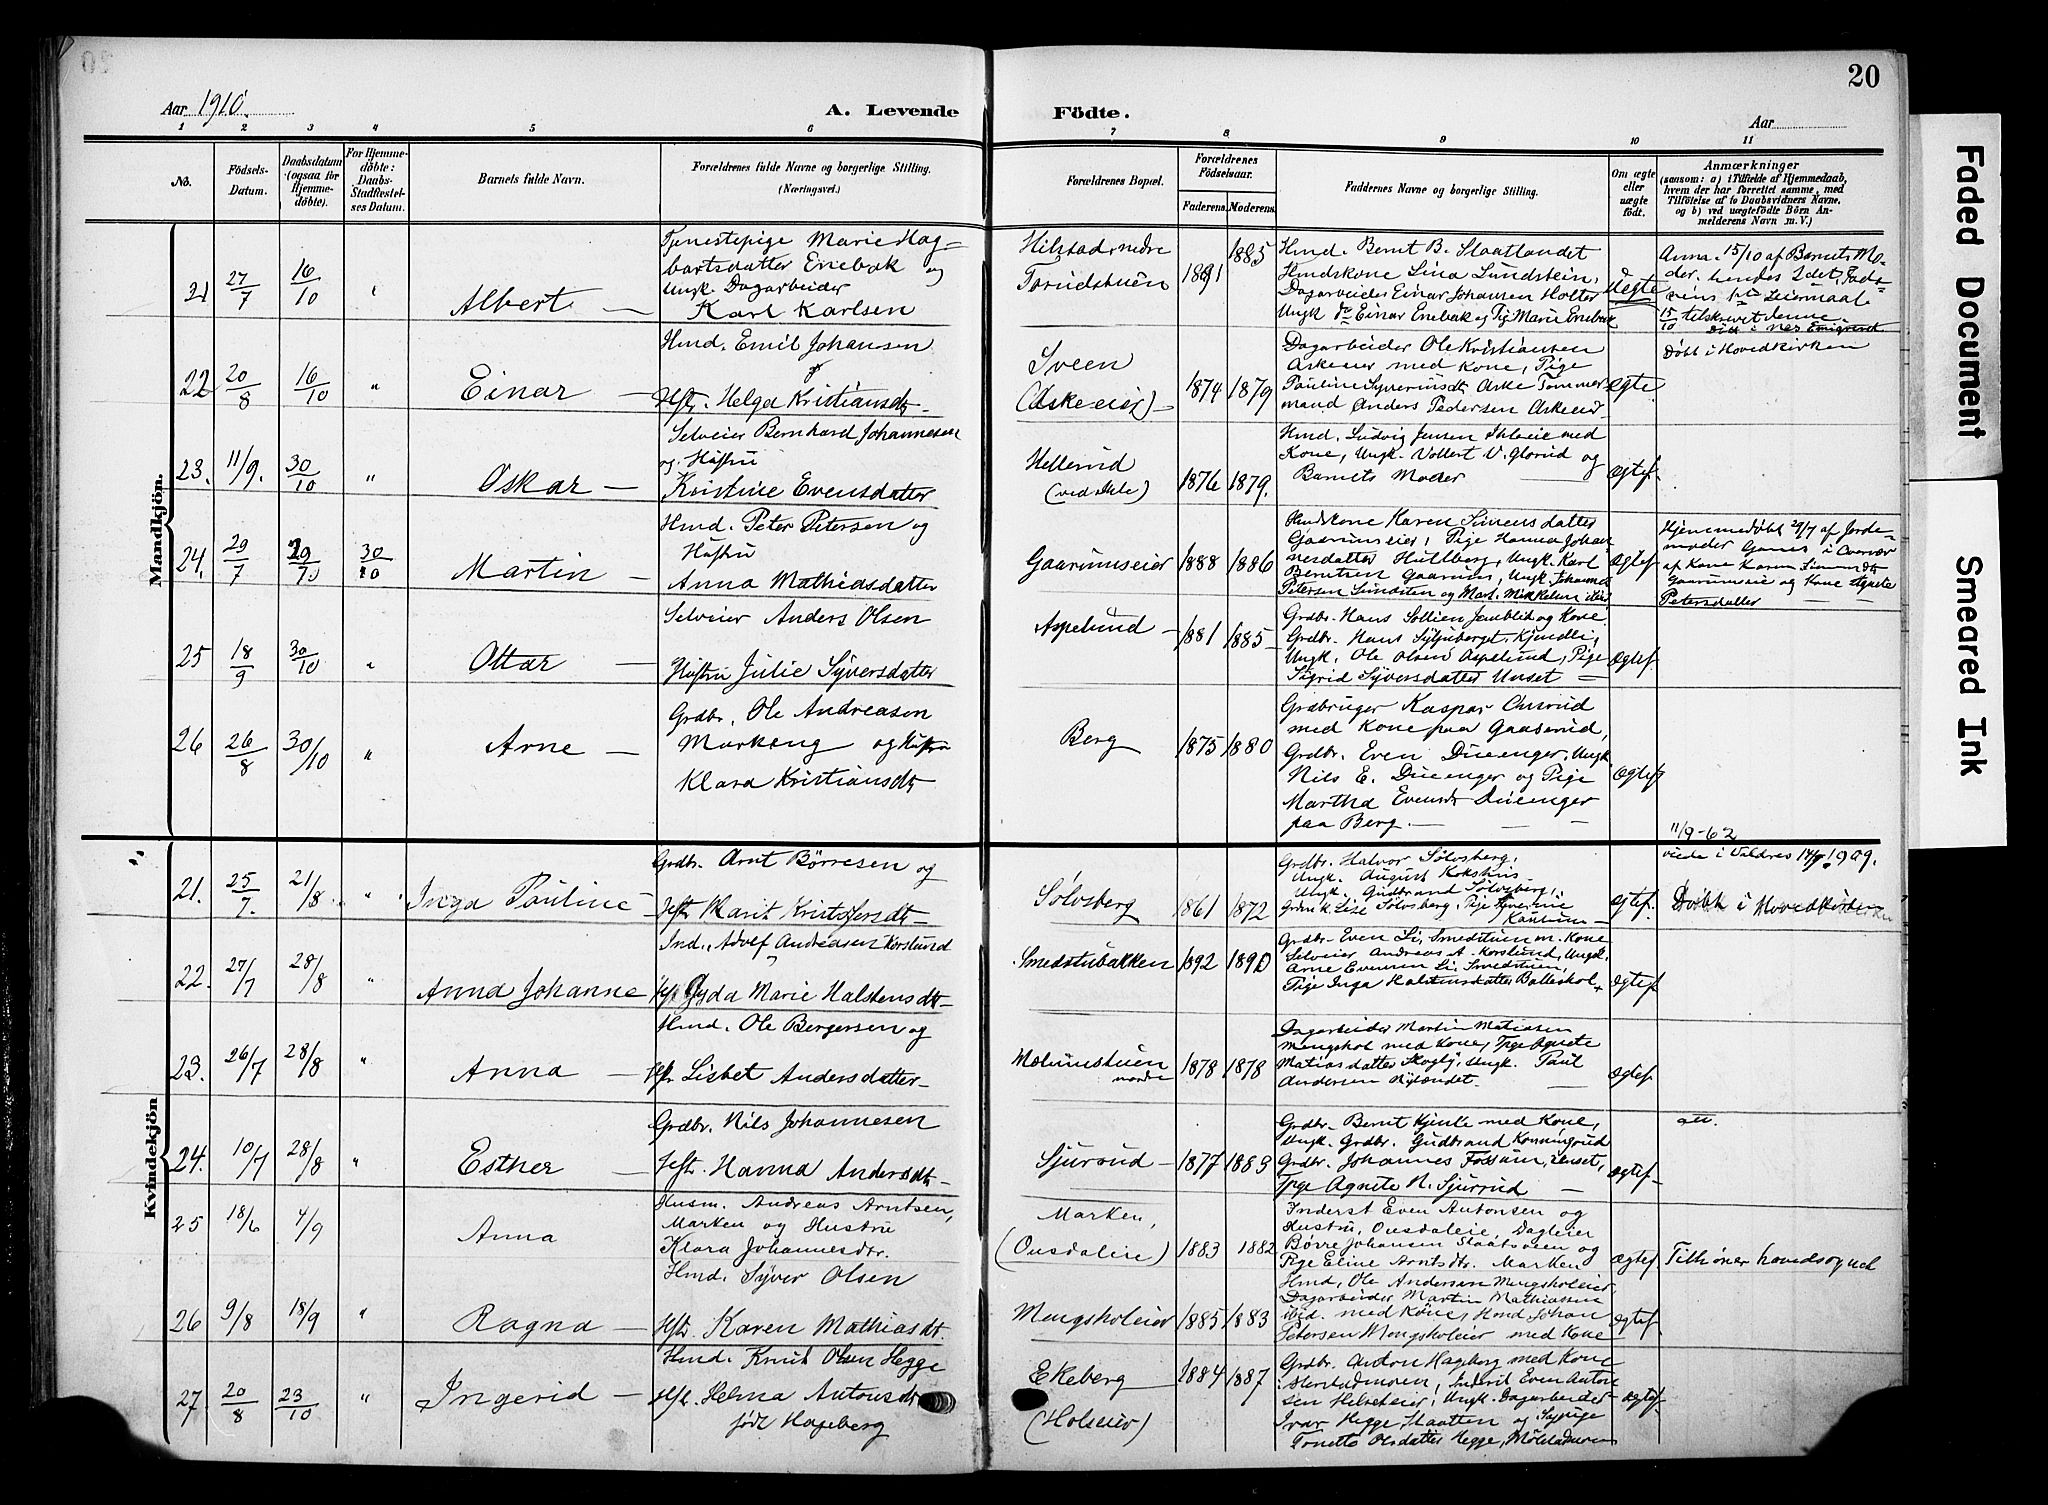 20
Aar 1910.
A. Levende Födte.
Aar
1 2 3 4 5 6 7 8 9 10 11
No.
Födsels-Datum.
Daabsdatum (ogsaa for Hjemmedöbte).
For Hjemmedöbte: Daabs-Stadfæstelses Datum.
Barnets fulde Navn.
Forældrenes fulde Navne og borgerlige Stilling. (Næringsvei.)
Forældrenes Bopæl.
Forældrenes Födselsaar.
Faderens. Moderens.
Faddernes Navne og borgerlige Stilling.
Om ægte eller uægte födt.
Anmærkninger
(saasom: a) i Tilfælde af Hjemmedaab, hvem der har forrettet samme, med Tilföielse af to Daabsvidners Navne, og b) ved uægtefödte Börn Anmelderens Navn m. V.)
Mandkjön.
21 27/7 16/10 " Albert —
Tjenestepige Marie Hag-
bartsdatter Enebak og
Ungk. Dagarbeider
Karl Karlsen
Hilstad nedre
Torudstuen
1891 1885
Hmd. Bernt B. Staatlandet
Hmdskone Lina Lundstein,
Dagarbeider Einar Johansen Holter
Ungk do Einar Enebak og Pig Marie Enebak
Uegte
Anna. 15/10 af Barnets Mo-
der, hendes 2det, Fade-
rens 1ste Leiermaal
15/10 tilskrevet denne.
22 20/8 16/10 " Einar —
Hmd. Emil Johansen
Hstr. Helga Kristiansdtr
Sveen
(Askeeier) —
1874 1879
Dagarbeider Ole Kristiansen
Askeeier med Kone, Pige
Pauline Syverinsdtr Aske Tømmer
mand Anders Pedersen Askeeid
ægte
Døbt i Hovedkirken
23. 11/9. 30/10 " Oskar —
Selveier Bernhard Johannesen
og Hustru
Kristine Evensdatter
Hellerud
(ved Skole)
1876 1879.
Hmd. Ludvig Jensen med
Kone, Ungk. Vollert V. Glorud og
Barnets Moder —
Ægtef.
24. 29/7 29/7 30/10 Martin —
Hmd. Peter Petersen og
Hustru
Anna Mathiasdatter
Gaarumseier
1888 1886
Hmdskone Karen Simensdatter
Gaarumseier, Pige Hanna Johan-
nesdatter Hullberg, Ungk. Karl
Berntsen Gaarum, Ungk. Johannes
Petersen
Ægtef
Hjemmedøbt 29/7 af Jorde-
moder i Overvær
af Kone Karen Simensdtr
Gaarumseie og Kone Agnete
Petersdatter —
25 18/9 30/10 " Ottar —
Selveier Anders Olsen
Hustru Julie Syversdatter
Aspelund —
1881 1885
Grdbr. Hans Sollien og Kone,
Grdbr. Hans Kjindli,
Ungk. Ole Olsen Aspelund, Pige
Sigrid Syversdatter Unset —
Ægtef.
26 26/8 30/10 " Arne —
Grdbr. Ole Andreasen
Markeng og Hustru
Klara Kristiansdtr
Berg
1875 1880
Grdbruger Kaspar
med Kone paa Gaaserud,
Grdbr. Even Duenger, Ungk
Nils E. Duenger og Pige
Martha Evensdtr Duenger
paa Berg. —
Ægtef
Kvindekjön
21. 25/7. 21/8 " Inga Pauline —
Grdbr. Arnt Börresen og
Hstr Marit Kristofersdtr
Sølvsberg
1861 1872
Grdbr. Halvor Sølvsberg,
Ungk. August
Ungk. Gudbrand Sølvsberg,
Grdmk. Lise Sølvsberg, Pige
ægtef.
11/9-62
viede i Valdres 14/9 1909.
Døbt i Hovedkirken
22. 27/7 28/8 " Anna Johanne
Ind. Adolf Andreasen Korslund
Hstr Gyda Marie Halstensdtr
Smedstubakken
1892 1890
Grdbr. Even Li, Smedstuen m. Kone
Selveier Andreas A. Korslund, Ungk.
Arne Evensen Li, Smedstuen,
Pige Inga Halstensdatter
ægtef.
23. 26/7 28/8 " Anna —
Hmd. Ole Bergersen og
Hstr Lisbet Andersdatter
nordre
1878 1878
Dagarbeider Martin Matiasen
Mengshol med Kone, Tpge Agnete
Matiasdatter Skogly, Ungk. Paul
Andersen Nylaendet. —
Ægtef.
24. 10/7 28/8 " Esther —
Grdbr. Nils Johannesen
Hstr. Hanna Andersdtr
Sjurrud —
1877 1883
Grdbr. Bernt Hjente med Kone,
Ungk. Grdbr. Gudbrand Konningrud
Grdbr. Johannes Fossum, Unset,
Tpge Agnete N. Sjurrud —
Ægtef.
25 18/6 4/9 Anna
Husm. Andreas Arntsen,
Marken og Hustru
Klara Johannesdtr.
Marken,
(Onsdaleie)
1883 1882
Inderst Even Antonsen og
Hustru, Onsdaleie, Dagleier
Børre Johansen og
Pige Eline Arntsdtr. Marken
Ægtef.
Tilhører hovedsognet
26 9/8 18/9 " Ragna —
Hmd. Syver Olsen
Hstr. Karen Mathiasdtr.
Mengsholeier
1885 1883
Hmd, Ole Andersen Mengsholeier,
Dagarbeider Martin Mathiassen
ibid. med Kone, Hmd Johan
Petersen Mengsholeier med Kone
Ægtef.
27. 20/8 23/10 " Ingerid —
Hmd. Knut Olsen Hegge
Hstr. Helma Antonsdtr
født Hageberg
Ekeberg
(Holseier)
1884 1887
Grdbr. Anton Hageberg med Kone
Inderst Even Anton-
sen Helseteier, Ungk. Dagarbeider
Ivar Hegge Staatten og
Tonette Olsdatter Hegge,
Ægtef.
Faded Document
Smeared Ink